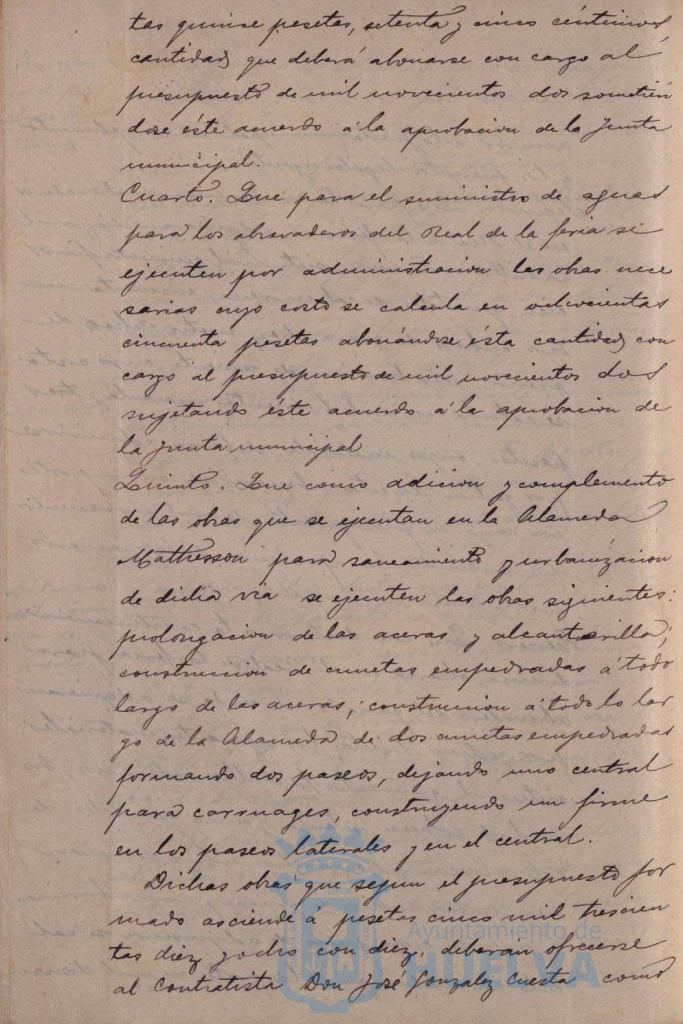 tas quinse pesetas, setenta y cinco céntimos
cantidad que deberá abonarse con cargo al
presupuesto de mil novecientos dos sometién
dose éste acuerdo á la aprobacion de la Junta
municipal.
Cuarto. Que para el suministro de aguas
para los abrevaderos del Real de la feria se
ejecuten por administracion las obras nece
sarias cuyo costo se calcula en ochocientas
cincuenta pesetas abonándose ésta cantidad con
cargo al presupuesto de mil novecientos dos
sujetando éste acuerdo á la aprobacion de
la Junta municipal
Quinto. Que como adicion y complemento
de las obras que se ejecutan en la Alameda
Mathesson para saneamiento y urbanizacion
de dicha via se ejecuten las obras siguientes:
prolongacion de las aceras y alcantarilla;
construccion de cunetas empedradas á todo
largo de las aceras; construccion á todo lo lar
go de la Alameda de dos cunetas empedradas
formando dos paseos, dejando uno central
para carruages, construyendo un firme
en los paseos laterales y en el central.
Dichas obras que segun el presupuesto for
mado asciende á pesetas cinco mil trescien
tas diez y ocho con diez, deberán ofrecerse
al contratista Don José Gonzalez Cuesta como
Ayuntamiento de
HUELVA